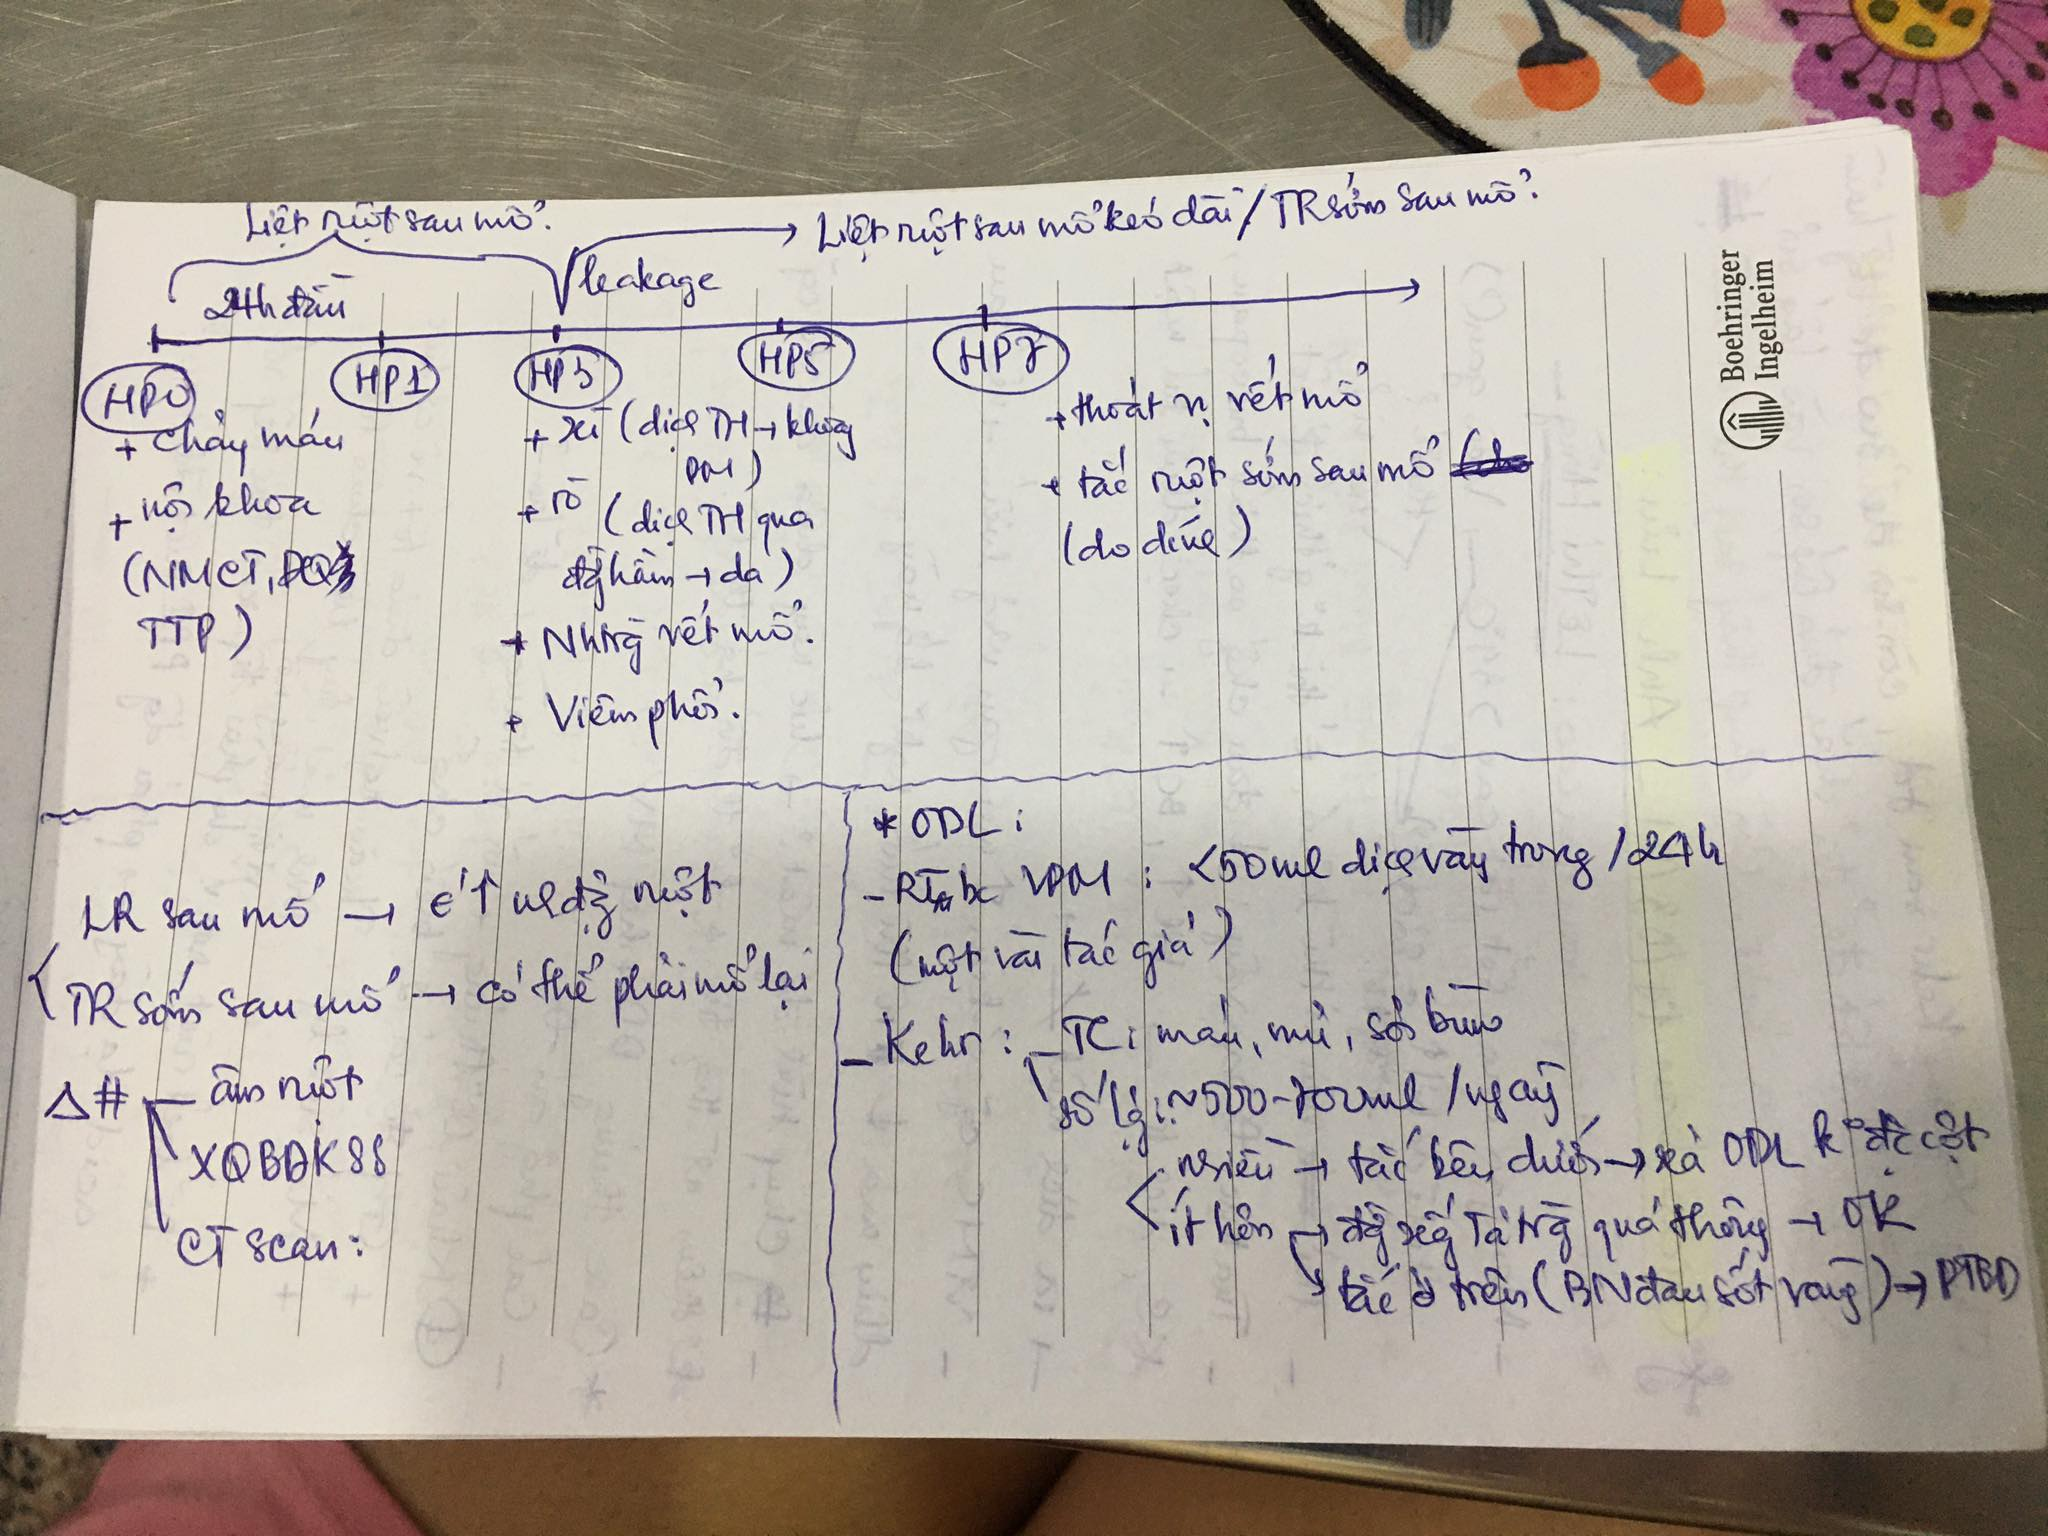 Liệt ruột sau mổ.
Liệt ruột sau mổ kéo dài / TR sớm sau mổ.
24h đầu
leakage
HP0
HP1
HP3
HP5
HP7
+ chảy máu
+ nội khoa
(NMCT,
TTP)
+ xì (dịch TH → khoang
PM)
+ rò (dịch TH qua
đg hầm → da)
+ Nhtrg vết mổ.
+ Viêm phổi.
+ thoát vị vết mổ
+ tắc ruột sớm sau mổ
(do dính)
Boehringer
Ingelheim
LR sau mổ →
ruột
TR sớm sau mổ → có thể phải mổ lại
Δ# - âm ruột
XQBĐKSS
CT scan:
* ODL:
- VPM: <50ml dịch vàng trong /24h
(một vài tác giả)
- Kehr: - TC: máu, mủ, sỏi bùn
số lg: ~500-700ml /ngày
nhiều → tắc bên dưới → xả ODL k° đc cột
ít hơn → đg xg Tá trg quá thông → OK
tắc ở trên (BN đau sốt vàng) → PTBD